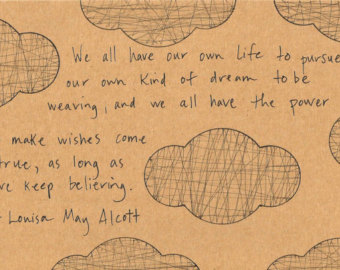 We all have our own life to pursue
our own kind of dream to be
weaving, and we all have the power
make wishes come
true, as long as
we keep believing.
- Louisa May Alcott